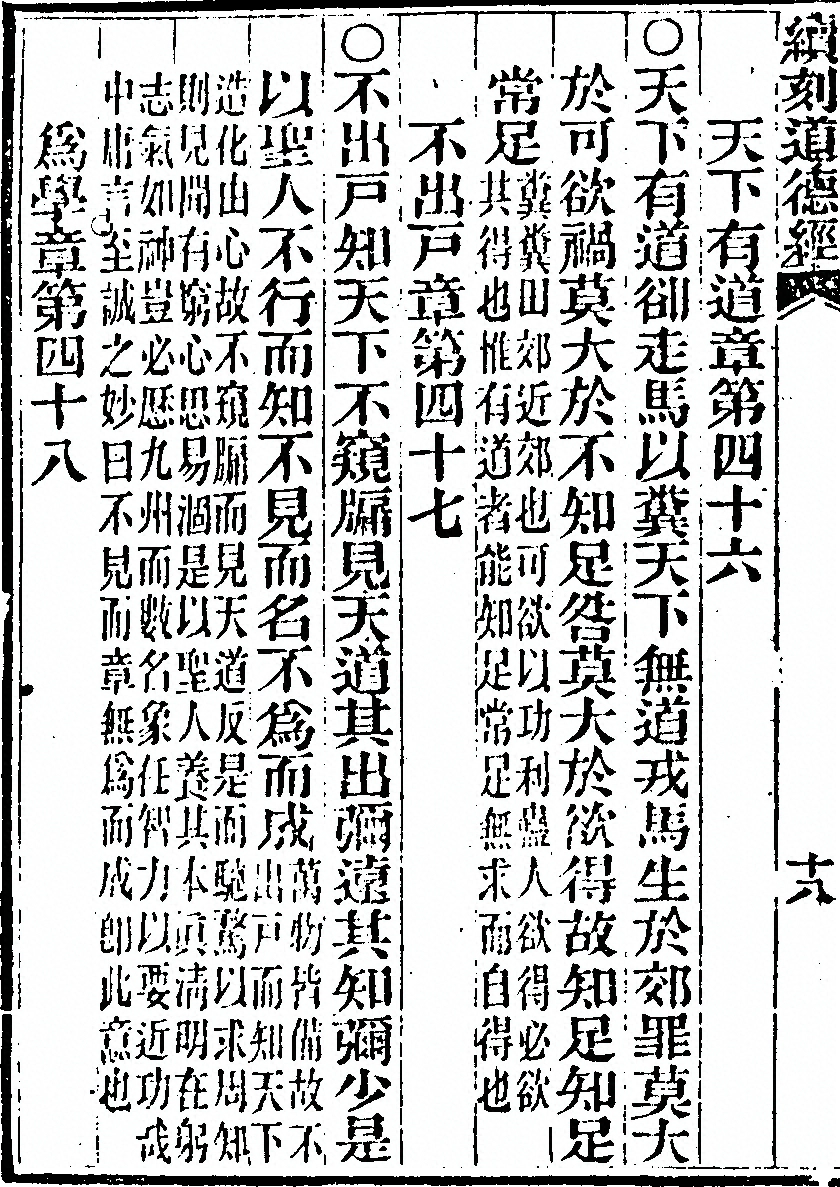 續刻道德經
十八
天下有道章第四十六
〇天下有道卻走馬以糞天下無道戎馬生於郊罪莫大
於可欲禍莫大於不知足咎莫大於欲得故知足知足
常足糞糞田郊近郊也可欲以功利蠱人欲得必欲
其得也惟有道者能知足常足無求而自得也
不出戸章第四十七
〇不出戸知天下不窺牖見天道其出彌遠其知彌少是
以聖人不行而知不見而名不爲而成萬物皆備故不
出戸而知天下
造化由心故不窺牖而見天道反是而馳騖以求周知
則見聞有窮心思易涸是以聖人養其本眞淸明在躬
志氣如神豈必歷九州而數名象任智力以要近功哉
中庸言至誠之妙曰不見而章無爲而成卽此意也
爲學章第四十八